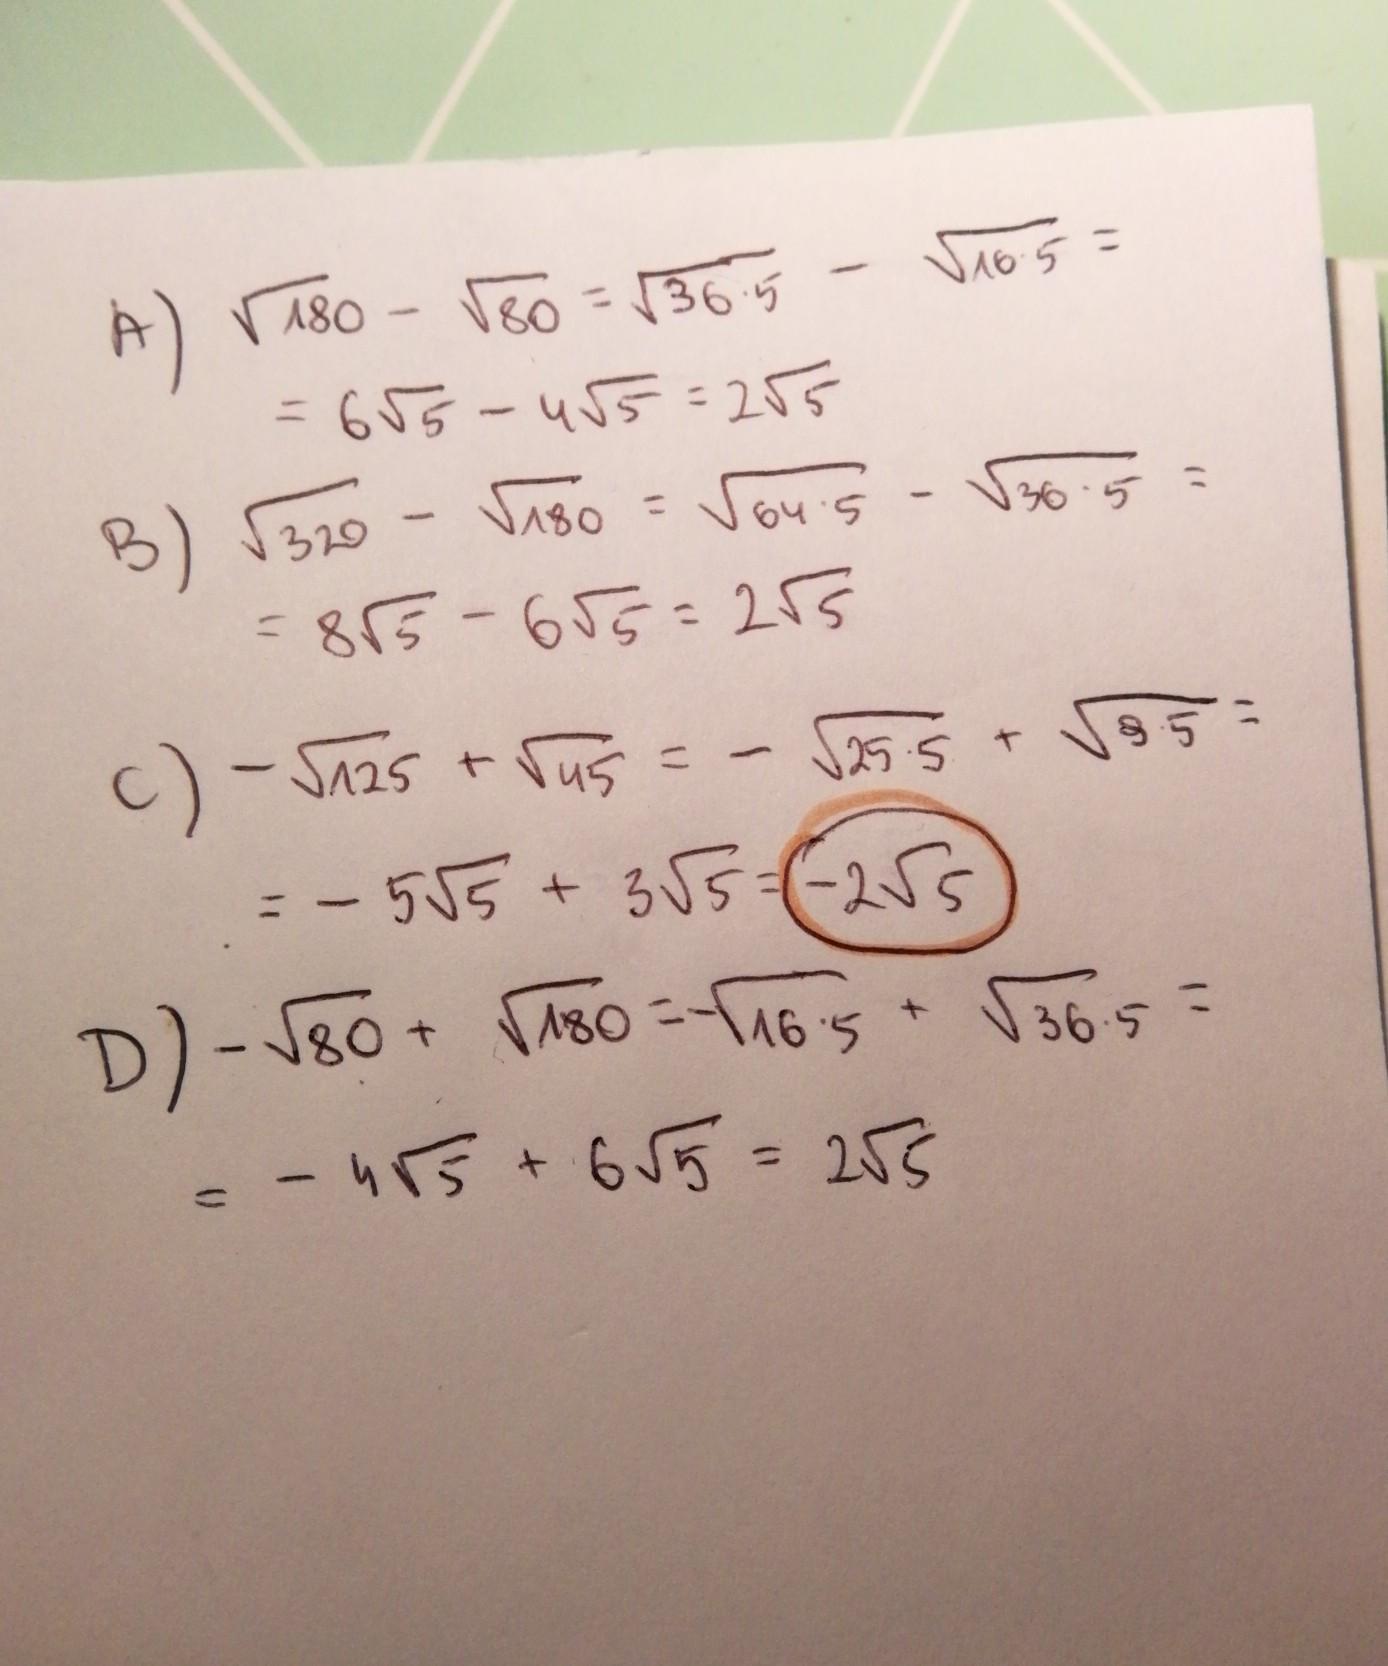 A) √180 - √80 = √36·5 - √16·5 =
= 6√5 - 4√5 = 2√5
B) √320 - √180 = √64·5 - √36·5 =
= 8√5 - 6√5 = 2√5
C) -√125 + √45 = - √25·5 + √9·5 =
= - 5√5 + 3√5 = -2√5
D) -√80 + √180 = -√16·5 + √36·5 =
= - 4√5 + 6√5 = 2√5